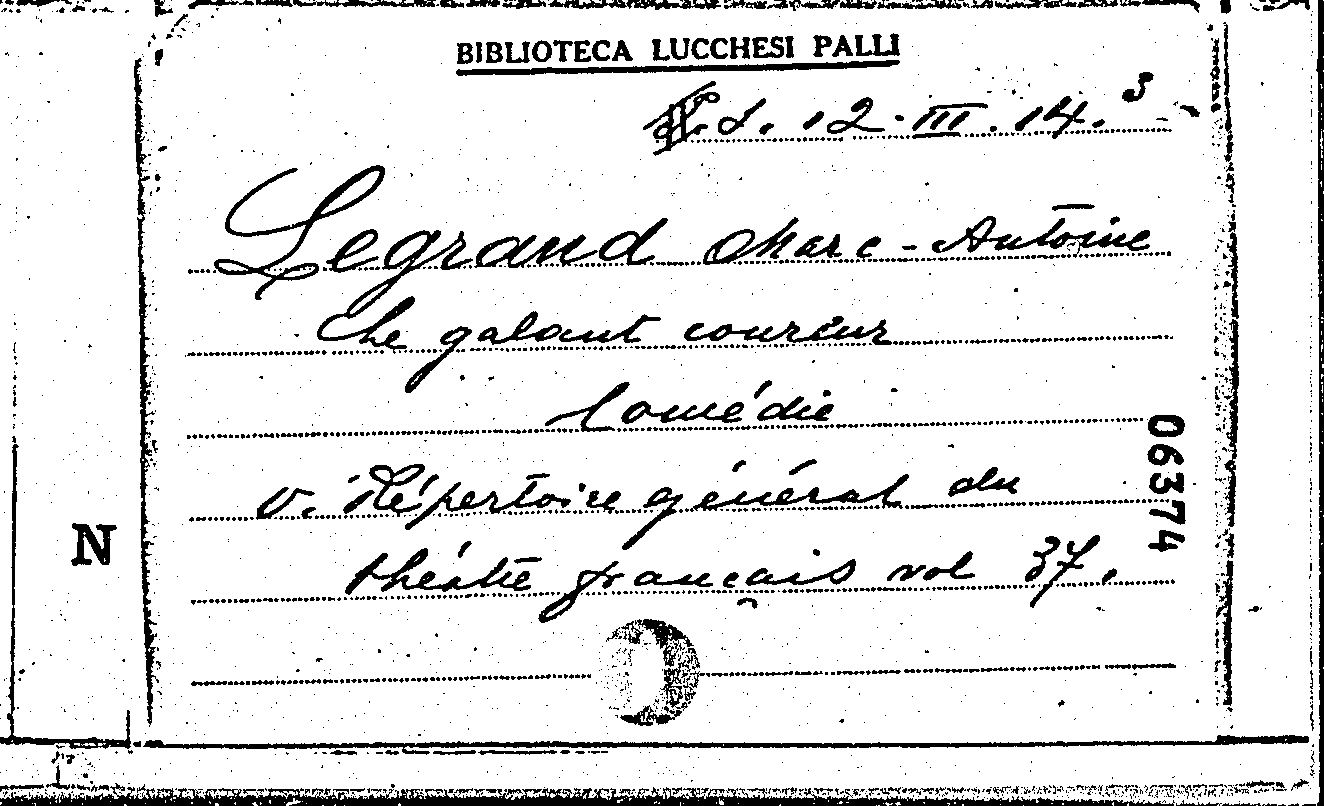 BIBLIOTECA LUCCHESI PALLI
L. 12. III. 14.3
Legrand Marc-Antoine
Le galant coureur
Comédie
v. Répertoire général du
théâtre français vol 37.
06374
N